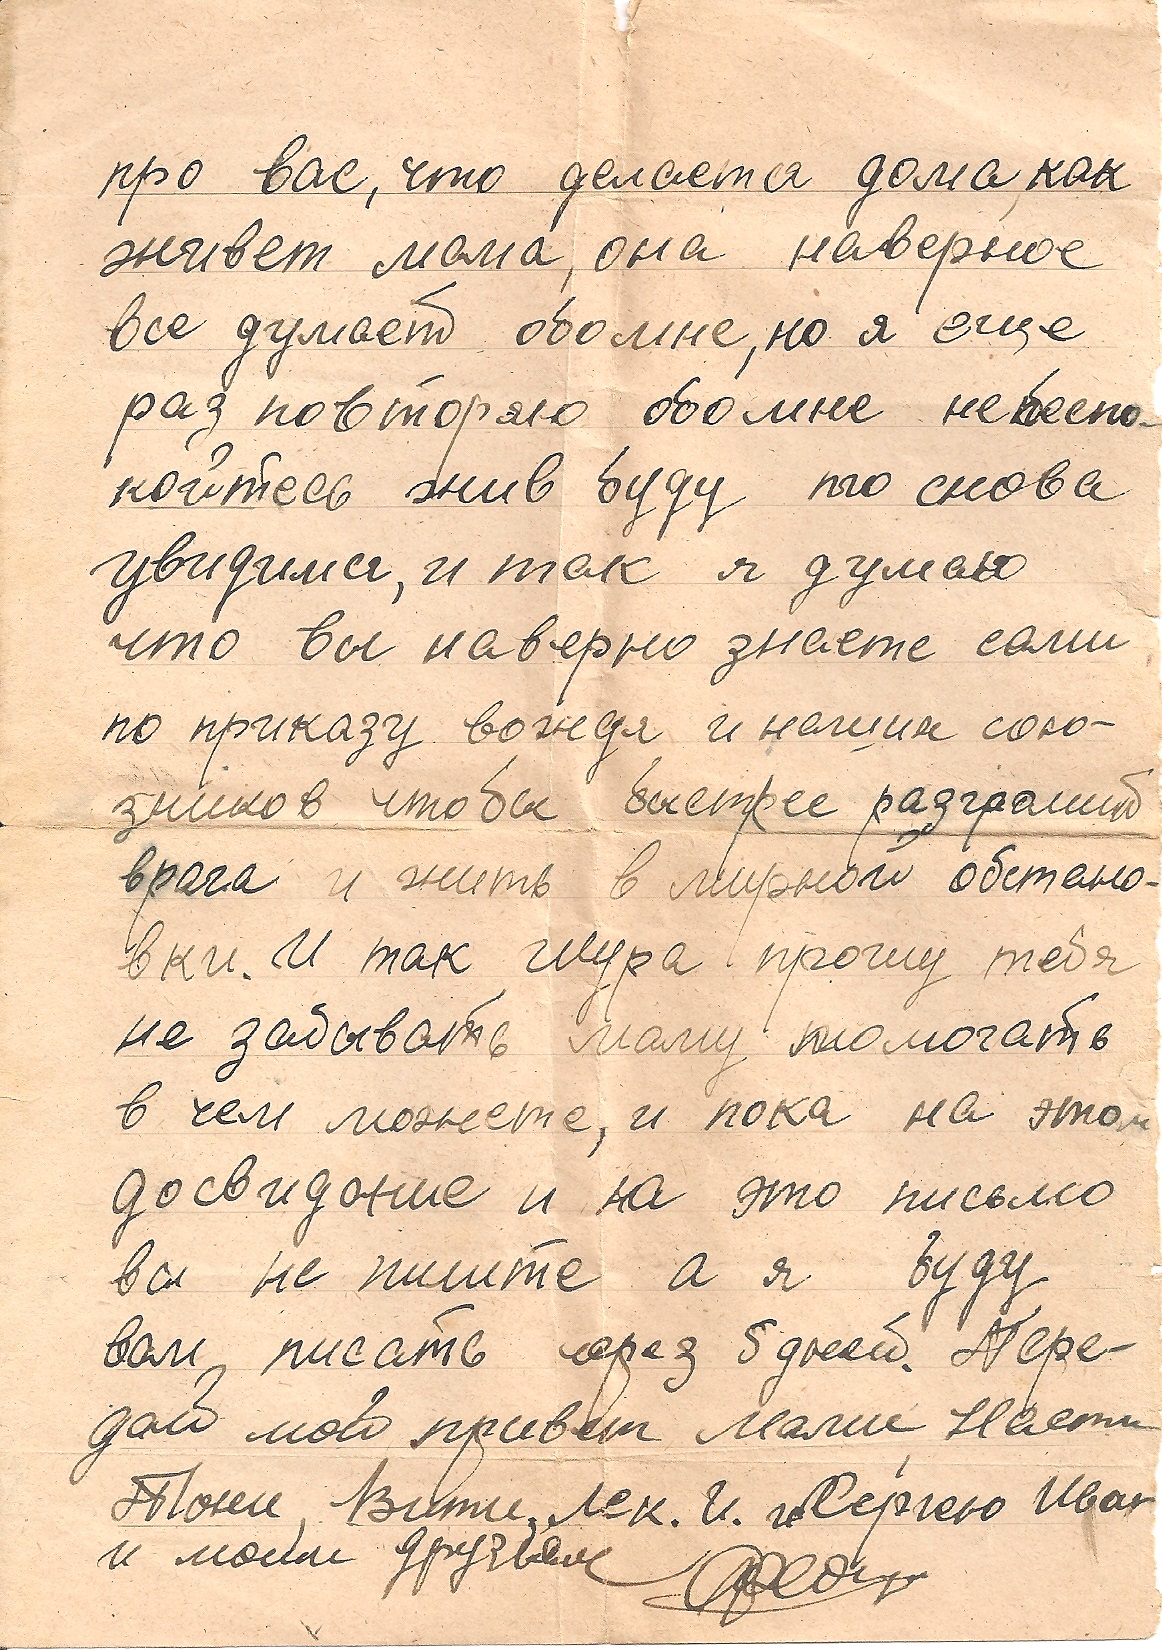 про вас, что делаетса дома, как
живет мама, она наверное
все думает обомне, но я еще
раз повторяю обомне небеспо-
койтесь жив буду то снова
увидимся, и так я думаю
что вы наверно знаете сами
по приказу вождя и наших сою-
зников чтобы быстрее разгромит
врага и жить в мирной обстано-
вки. И так Шура прошу тебя
не забывать маму помогать
в чем можете, и пока на этом
досвидание и на это письмо
вы не пишите а я буду
вам писать через 5 дней. Пере-
дай мой привет мами Насти
Тони, Вити, Лек. И. и Сергею Иван
и моим друзьям